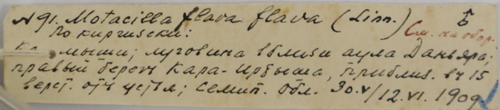 № 91. Motacilla flava flava (Linn.) ♁
По киргизски: См. на обор.
Камыши; луговина вблизи аула Даньяра;
правый берег Кара-Иртыша, приблиз. въ 15
верст. отъ устья; Семип. Обл. 30.V/12.VI.1909